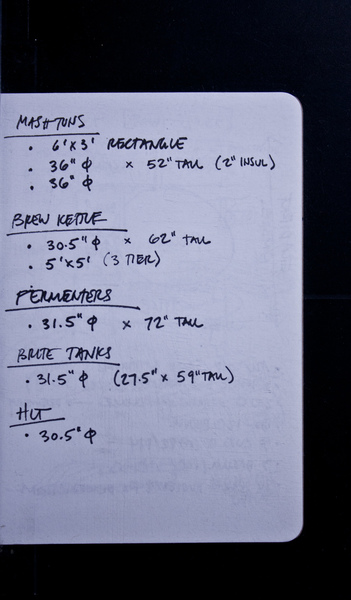 MASH TUNS
· 6'X3' RECTANGLE
· 36" Φ x 52" TALL (2" INSUL)
· 36" Φ
BREW KETTLE
· 30.5" Φ x 62" TALL
· 5'X5' (3 TIER)
FERMENTERS
· 31.5" Φ x 72" TALL
BRITE TANKS
· 31.5" Φ (27.5" x 59" TALL)
HLT
· 30.5" Φ